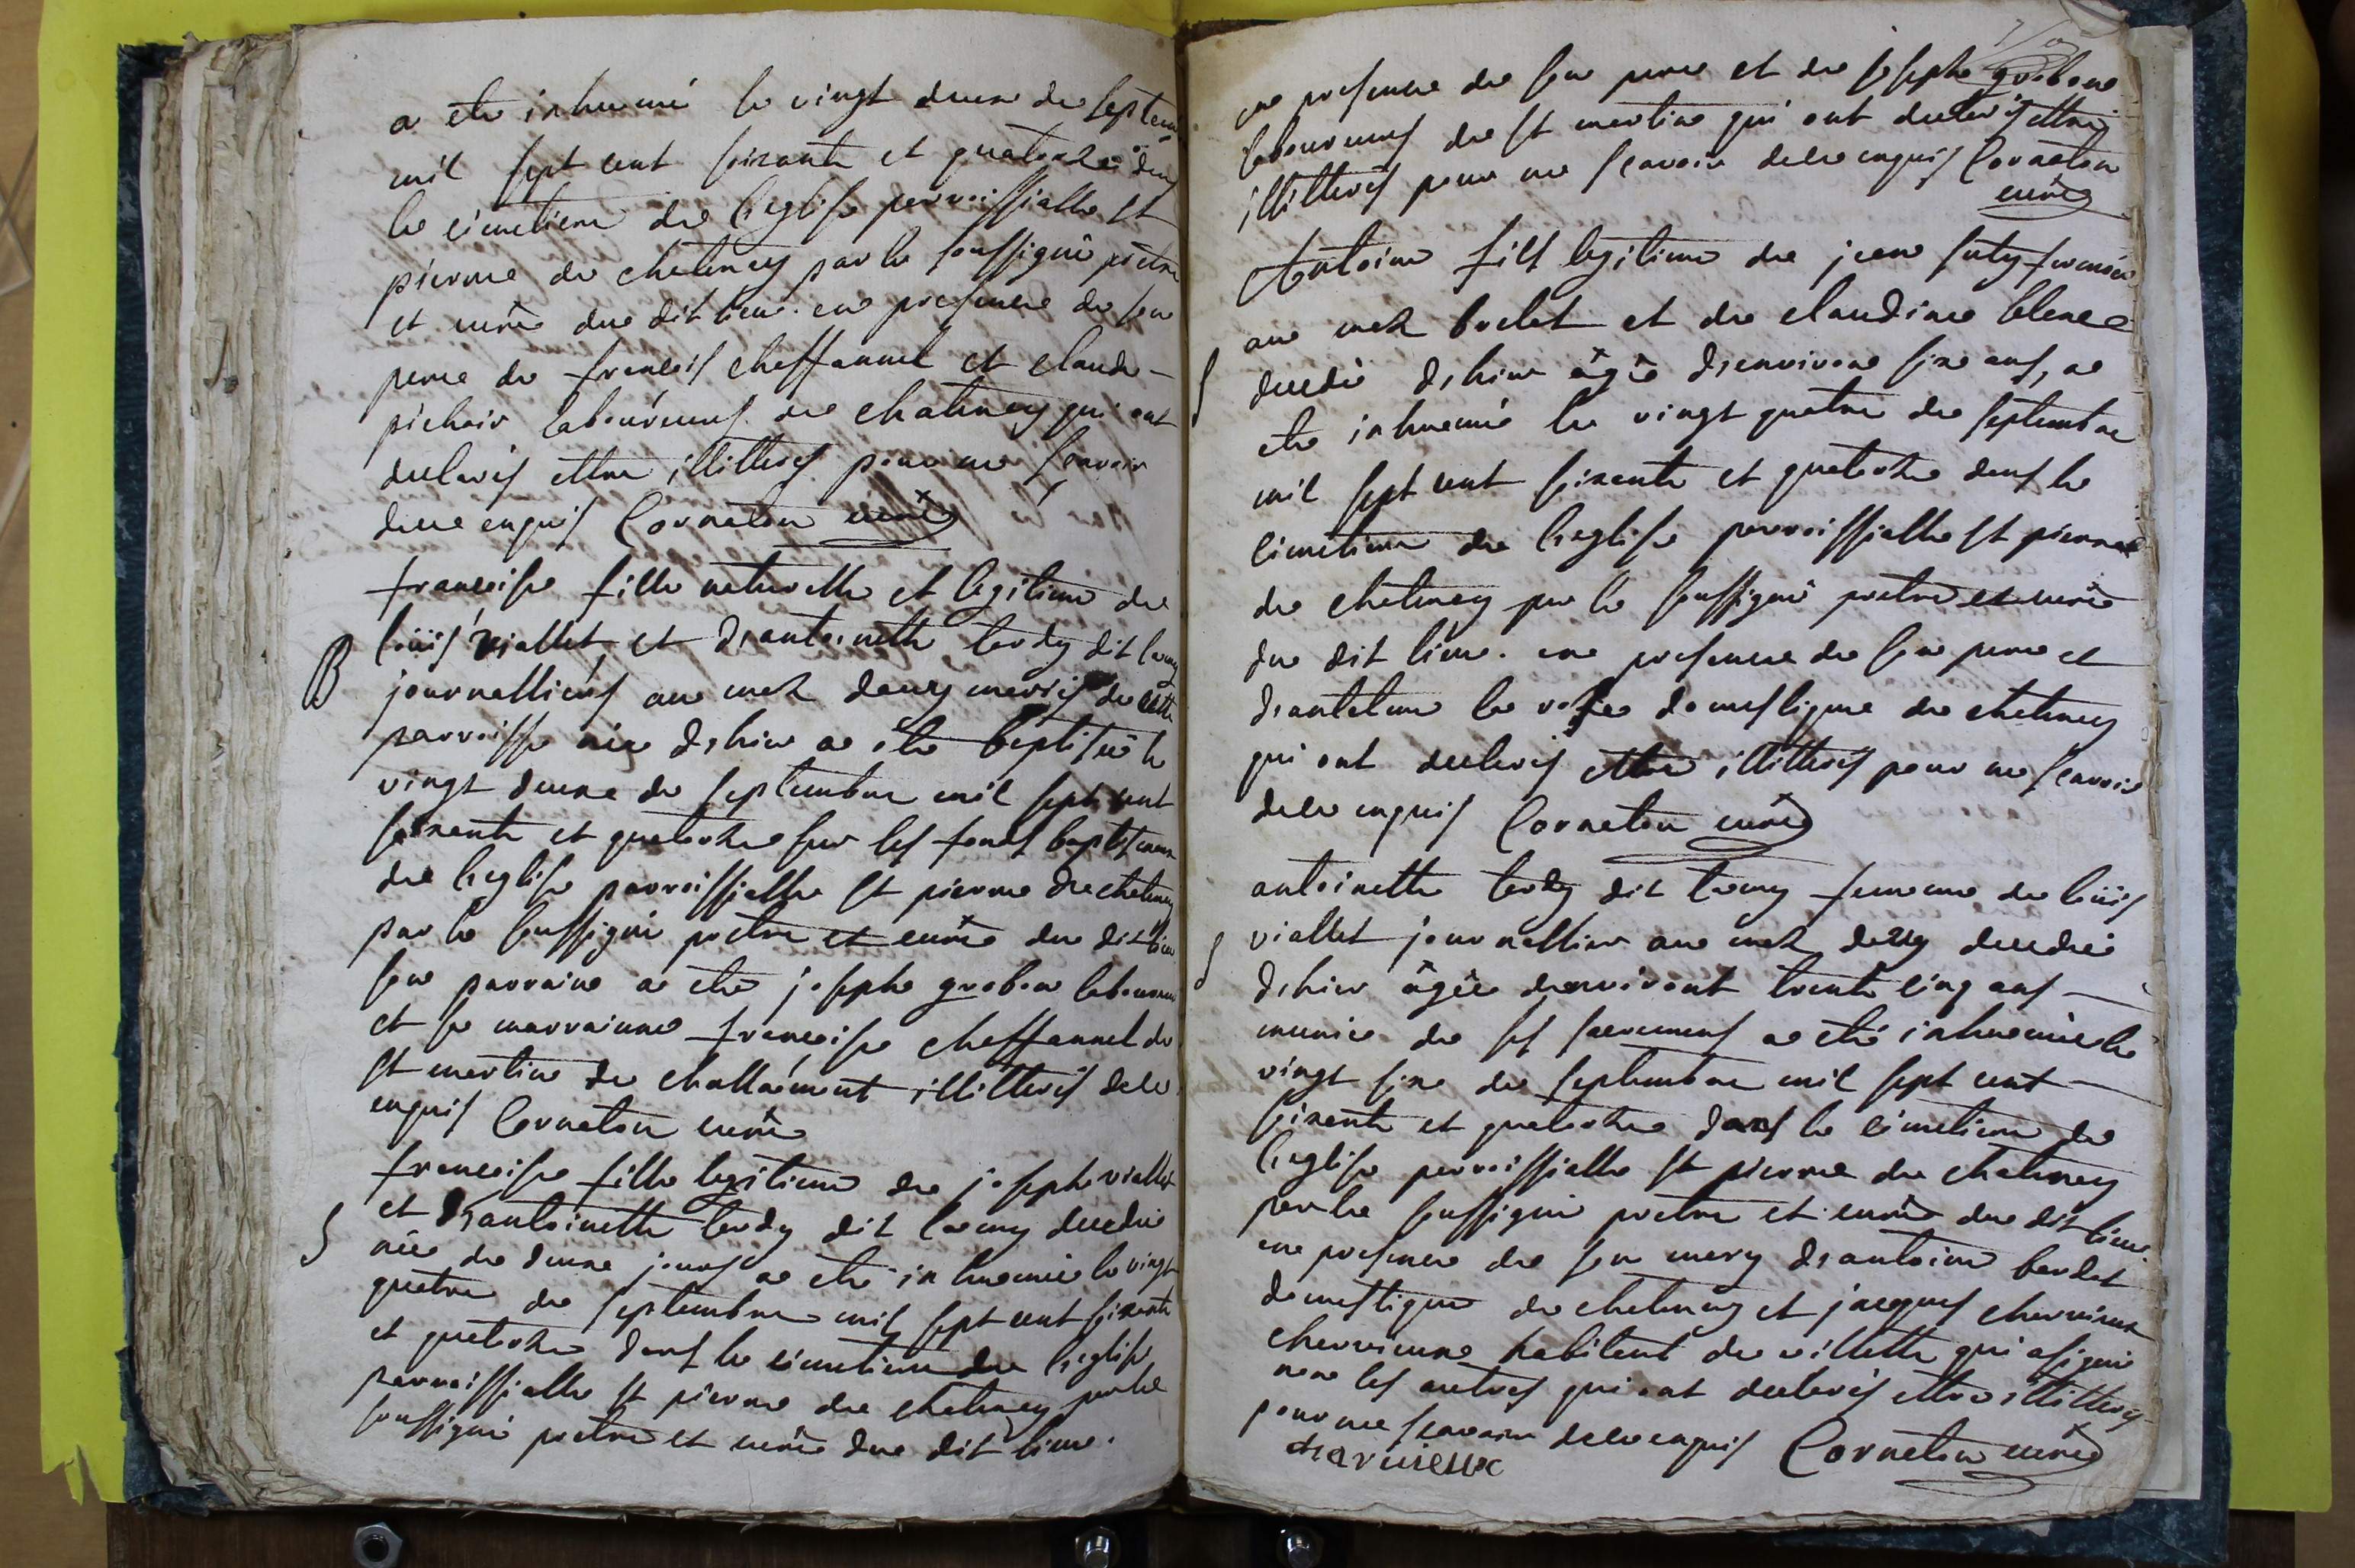 a ete inhumé le vingt deux de septem
mil sept cent soixante et quatorze dans
le cimetiere de l'eglise parroissialle st
pierre de chatenay par le soussigné prêtre
et curé du dit lieu. en presence de son
pere de francois cheffannel et claude
labourieurs de chatenay qui ont
declarés ettre illitterés pour ne scavoir
de ce enquis Cornaton curé
francoise fille naturelle et legitime de
loüis viallet, et d'antoinette tardy dit
journalliers au mas marié de cette
parroisse née d'hier a été baptisée le
vingt deux de septembre mil sept cent
soixante et quatorze sur les fonds baptismau
de l'eglise parroissialle st pierre de chatenay
par le soussigné prêtre et curé du dit lieu
son parrain a eté joseph grobon laboureur
et sa marrainne francoise cheffannel de
st martin de challamont illitterés de ce
enquis Cornaton curé
francoise fille legitime de joseph viallet
et d'antoinette tardy dit decedée
née de deux jours a eté inhumée le vingt
quatre de septembre mil sept cent soixante
et quatorze dans le cimetiere de l'eglise
parroissialle st pierre de chatenay par le
soussigné prêtre et curé du dit lieu.
en presence de son pere et de joseph grobon
laboureurs de st martin qui ont declarés ettre
illitterés pour ne scavoir de ce enquis Cornaton
curé
Antoine fils legitime de jean
au mas et de claudine blanc
decedé d'hier âgé d'environ six ans, a
eté inhumé le vingt quatre de septembre
mil sept cent soixante et quatorze dans le
cimetiere de l'eglise parroissialle st pierre
de chatenay par le soussigné prêtre et curé
du dit lieu. en presence de son pere et
domestique de chatenay
qui ont declarés ettre illitterés pour ne scavoir
de ce enquis Cornaton curé
antoinette tardy dit femme de loüis
viallet journallier au mas decedée
d'hier âgée d'environt trente cinq ans
munie de ses sacremens a eté inhumée le
vingt six de septembre mil sept cent
soixante et quatorze dans le cimetiere de
l'eglise parroissialle st pierre de chatenay
par le soussigné prêtre et curé du dit lieu
en presence de son mary d'antoine
domestique de chatenay et jacques
habitent de villette qui a signé
non les autres qui ont declarés ettre illitterés
pour ne scavoir de ce enquis Cornaton curé